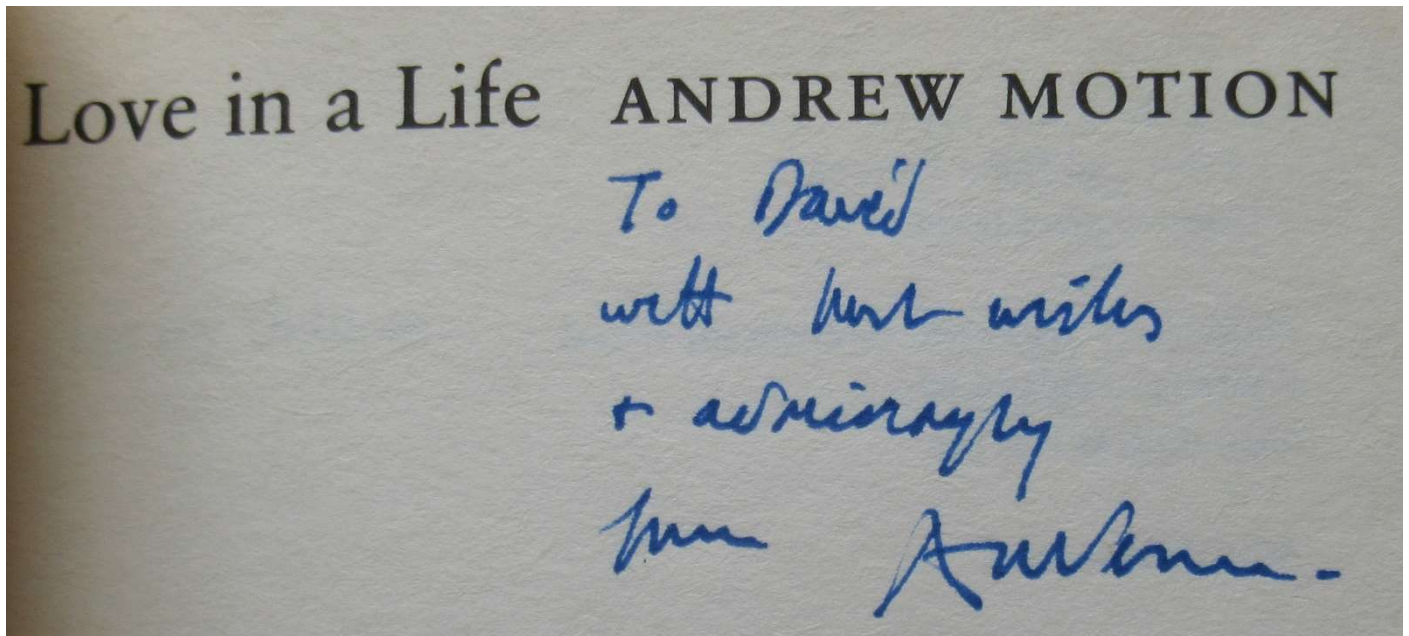 Love in a Life ANDREW MOTION
To David
with best wishes
+ admiringly
from Andrew.